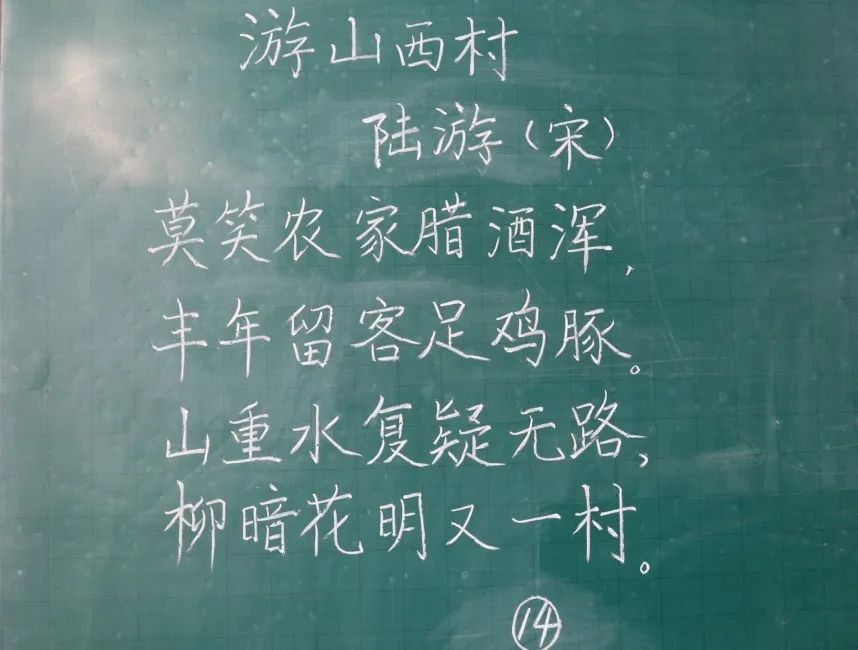 游山西村
陆游(宋)
莫笑农家腊酒浑,
丰年留客足鸡豚。
山重水复疑无路,
柳暗花明又一村。
⑭